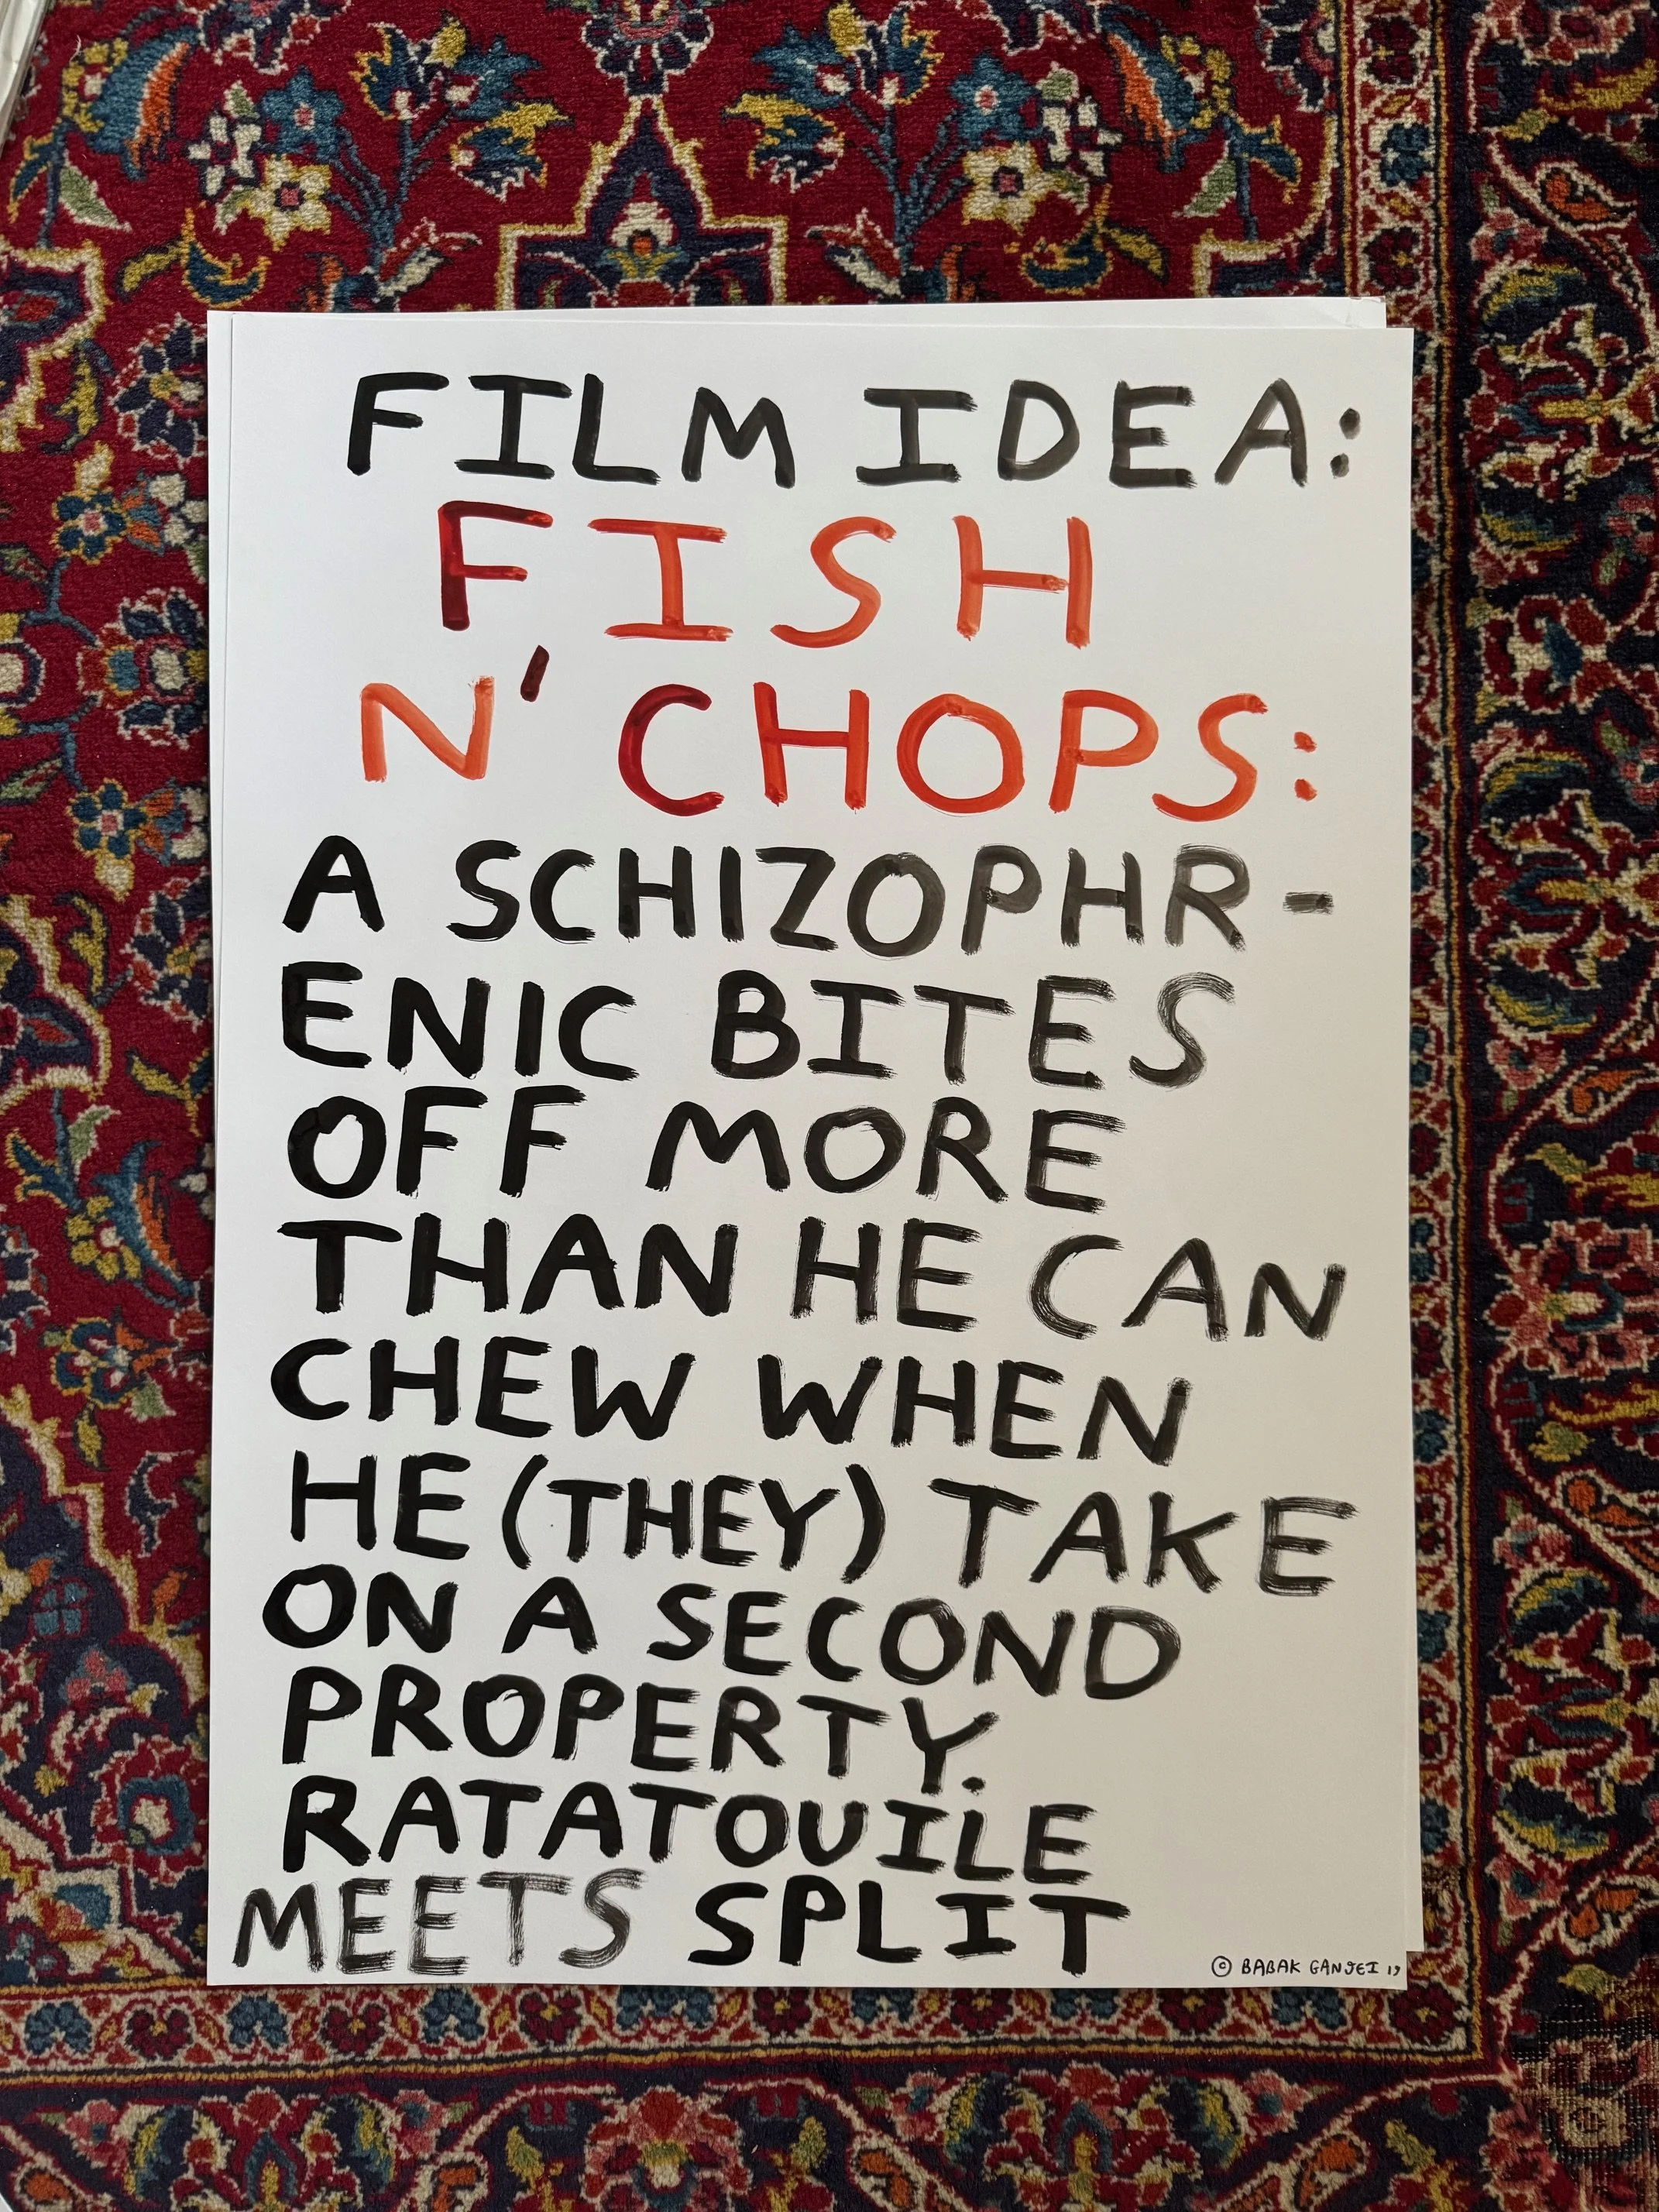 FILM IDEA:
FISH
N' CHOPS:
A SCHIZOPHR-
ENIC BITES
OFF MORE
THAN HE CAN
CHEW WHEN
HE (THEY) TAKE
ON A SECOND
PROPERTY.
RATATOUILE
MEETS SPLIT
© BABAK GANJEI 19